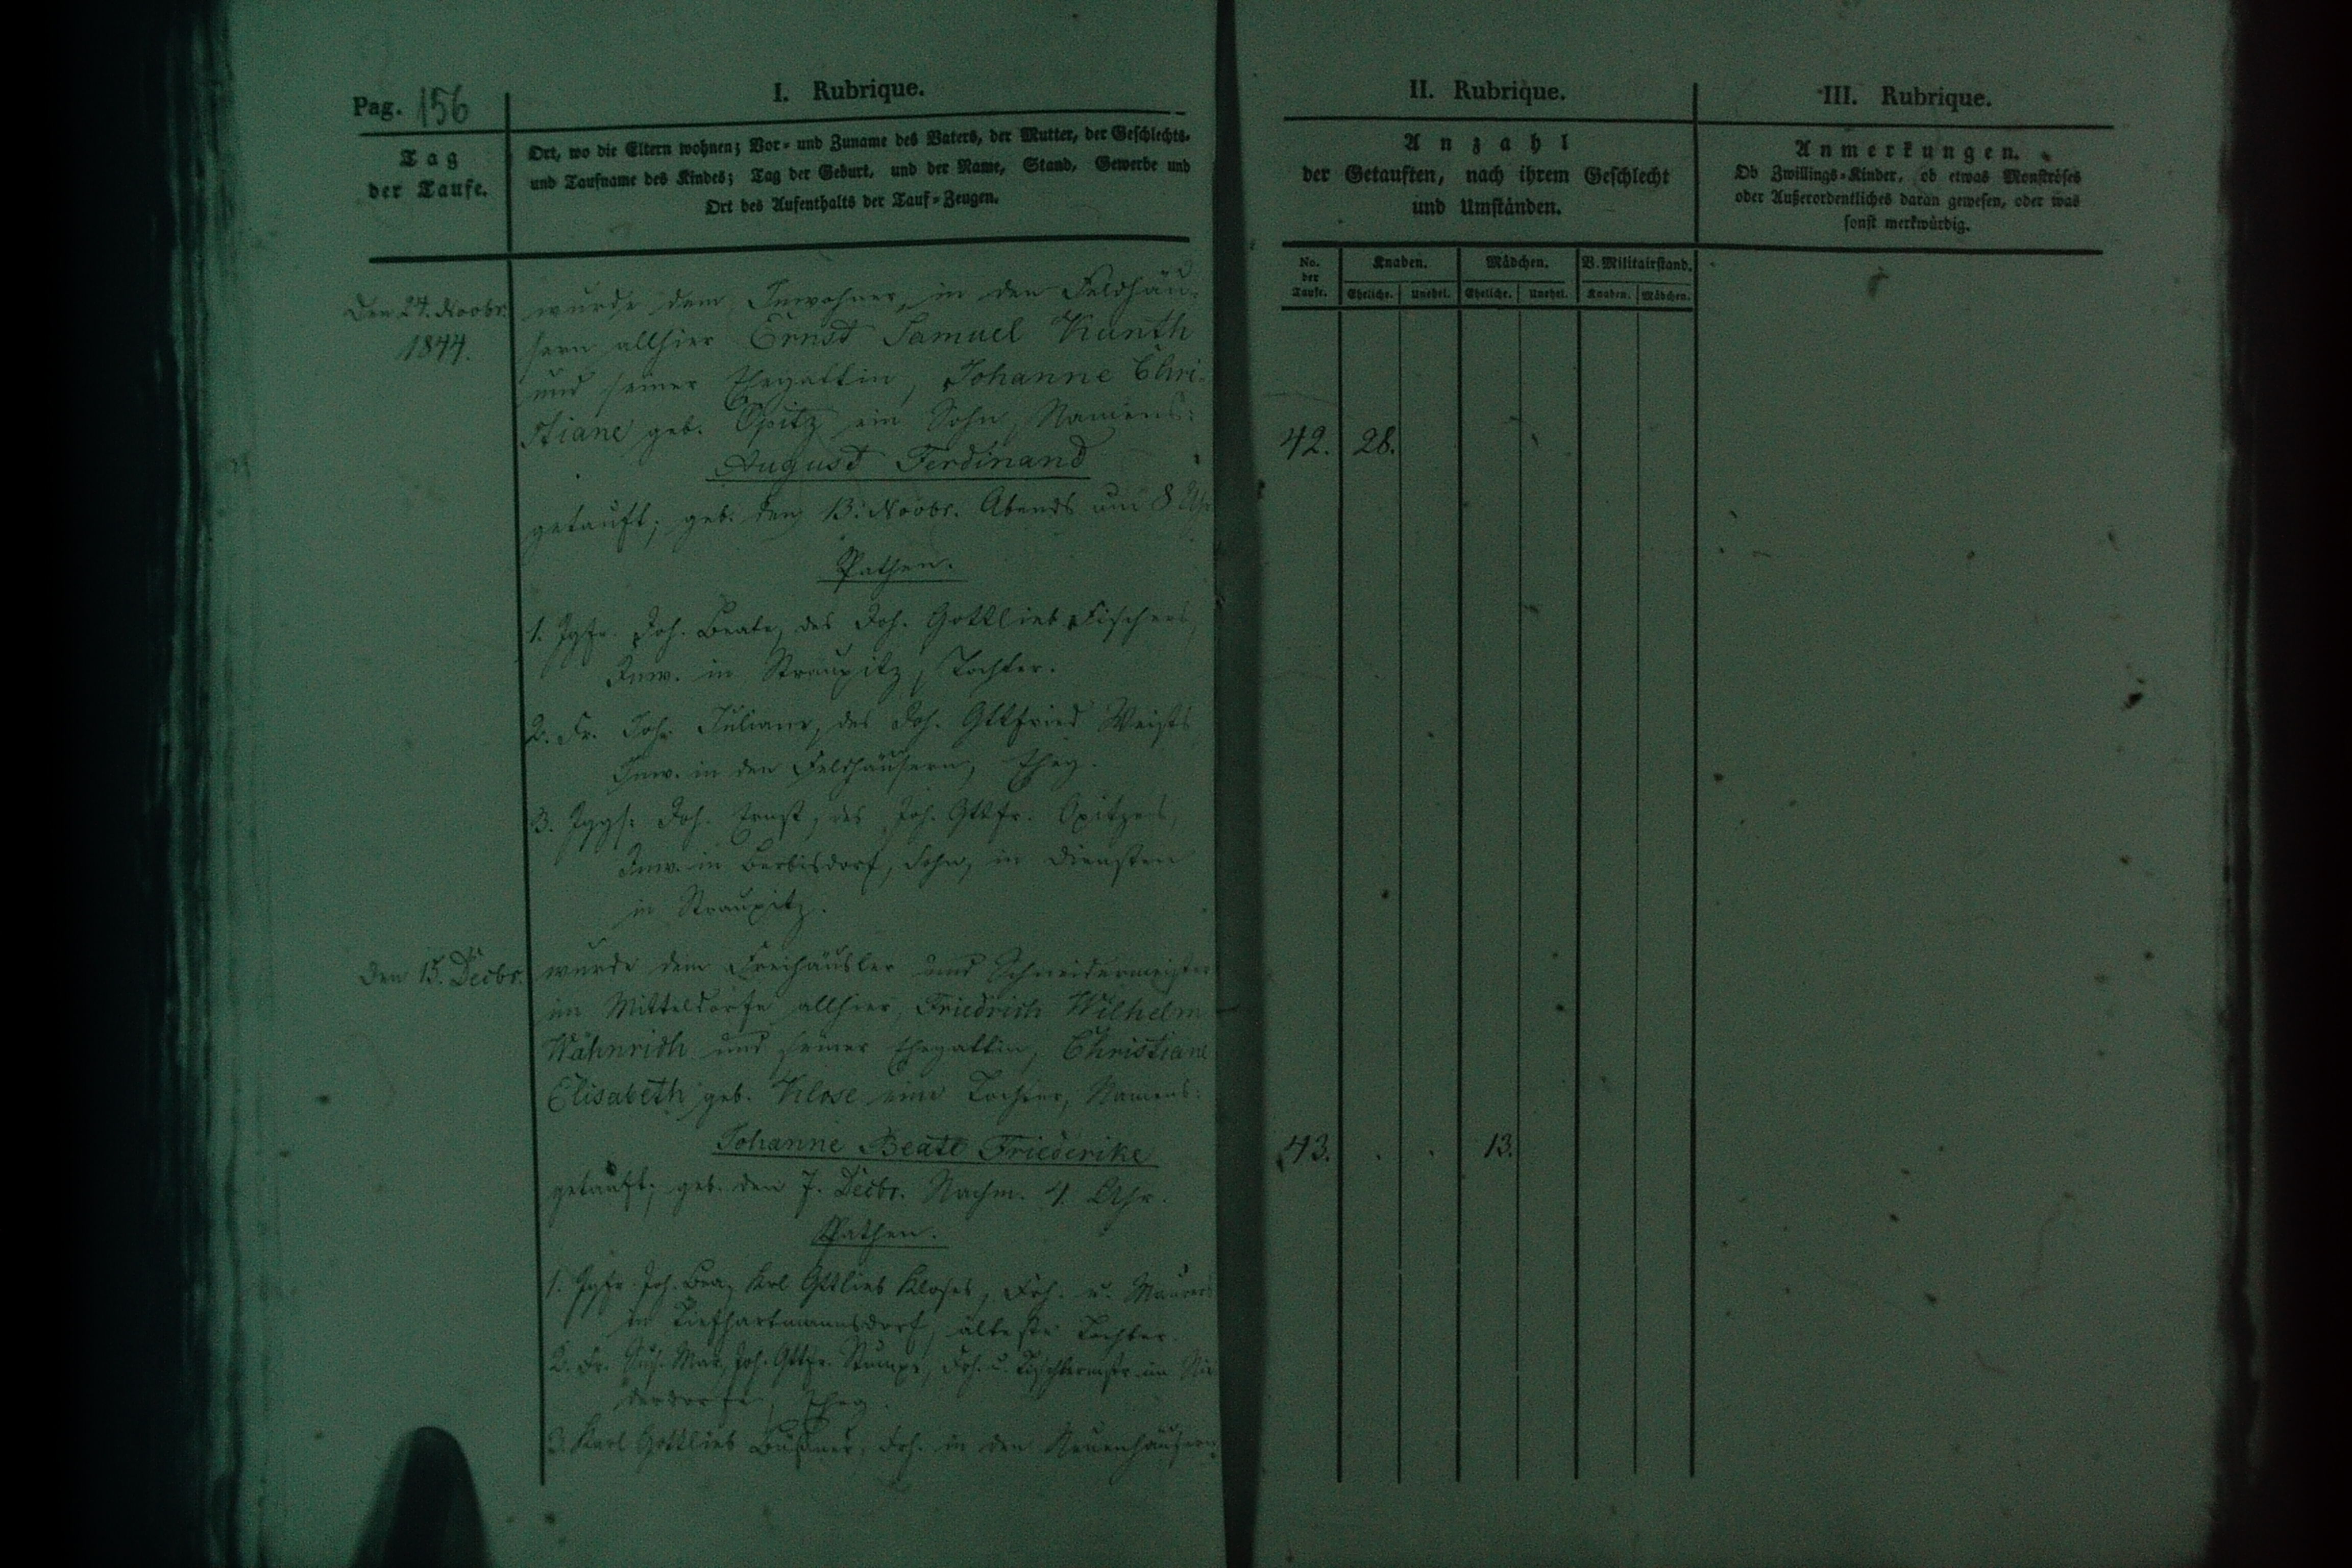 Pag. 156
I. Rubrique.
Tag
der Taufe.
Ort, wo die Eltern wohnen; Vor- und Zuname des Vaters, der Mutter, der Geschlechts-
und Taufname des Kindes; Tag der Geburt, und der Name, Stand, Gewerbe und
Ort des Aufenthalts der Tauf-Zeugen.
Den 24. Novbr.
1844.
wurde dem Inwohner, in den Feldhäu-
sern allhier Ernst Samuel Kunth
und seiner Ehegattin, Johanne Chri-
stiane geb. Opitz ein Sohn, Namens:
August Ferdinand
getauft; geb. den 13. Novbr. Abends um 8 Uhr
Pathen.
1. Jgfr. Joh. Beate, des Joh. Gottlieb Fischers,
Inw. in Straupitz, Tochter.
2. Fr. Joh. Juliane, des Joh. Gttfried Weists
Inw. in den Feldhäusern, Eheg.
3. Jggs: Joh. Ernst, des Joh. Gttfr. Opitzens,
Inw. in Berbisdorf, Sohn, in Diensten
in Straupitz.
Den 15. Decbr.
wurde dem Freihäusler und Schneidermeister
im Mitteldorfe allhier, Friedrich Wilhelm
Wähnrich und seiner Ehegattin, Christiane
Elisabeth geb. Klose eine Tochter, Namens:
Johanne Beate Friederike
getauft; geb. den 7. Decbr. Nachm. 4. Uhr.
Pathen.
1. Jgfr. Joh. Bea, Karl Gttlieb Kloses, Frh. u. Maurers
in Tiefhartmannsdorf, älteste Tochter.
2. Fr. Sus. Mar, Joh. Gttfr. Stumpe, Frh. u. Tischlermstr. im Nie
derdorfe, Eheg.
3. Karl Gottlieb Büttner, Frh. in den Neuenhäusern.
II. Rubrique.
Anzahl
der Getauften, nach ihrem Geschlecht
und Umständen.
No.
der
Taufe.
Knaben. Mädchen. B. Militairstand.
Eheliche. Unehel. Eheliche. Unehel. Knaben. Mädchen.
42. 28.
43. . . 13.
III. Rubrique.
Anmerkungen.
Ob Zwillings-Kinder, ob etwas Monströses
oder Außerordentliches daran gewesen, oder was
sonst merkwürdig.